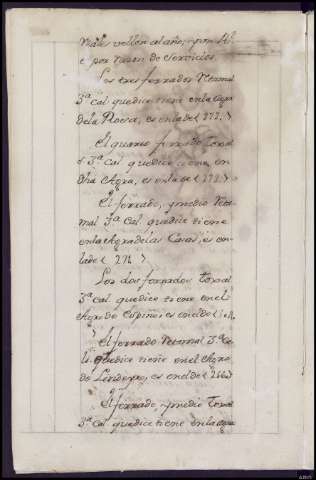 reales vellon al año, y un
e por razon de Servicios
Los tres ferrados Ttornal
3ª Cal que dice tiene en la Agra
de la Roera, es en la de ( 272. )
El quarto ferrado Torna
l 3ª Cal que dice tiene, en
dha Agra, es en la de ( 272 )
El ferrado, y medio Ttor
nal 3ª Cal que dice tiene
en la Agra de las Casas, es en
la de ( 274 )
Los dos ferrados Tornal
3ª cal que dice tiene en el
Agro de Espiño es en el de (
El ferrado Ttornal 3ª Ca
l que dice tiene en el Agro
de es en el de ( 266 )
El ferrado, y medio Tornal
3ª cal que dice tiene en la agra